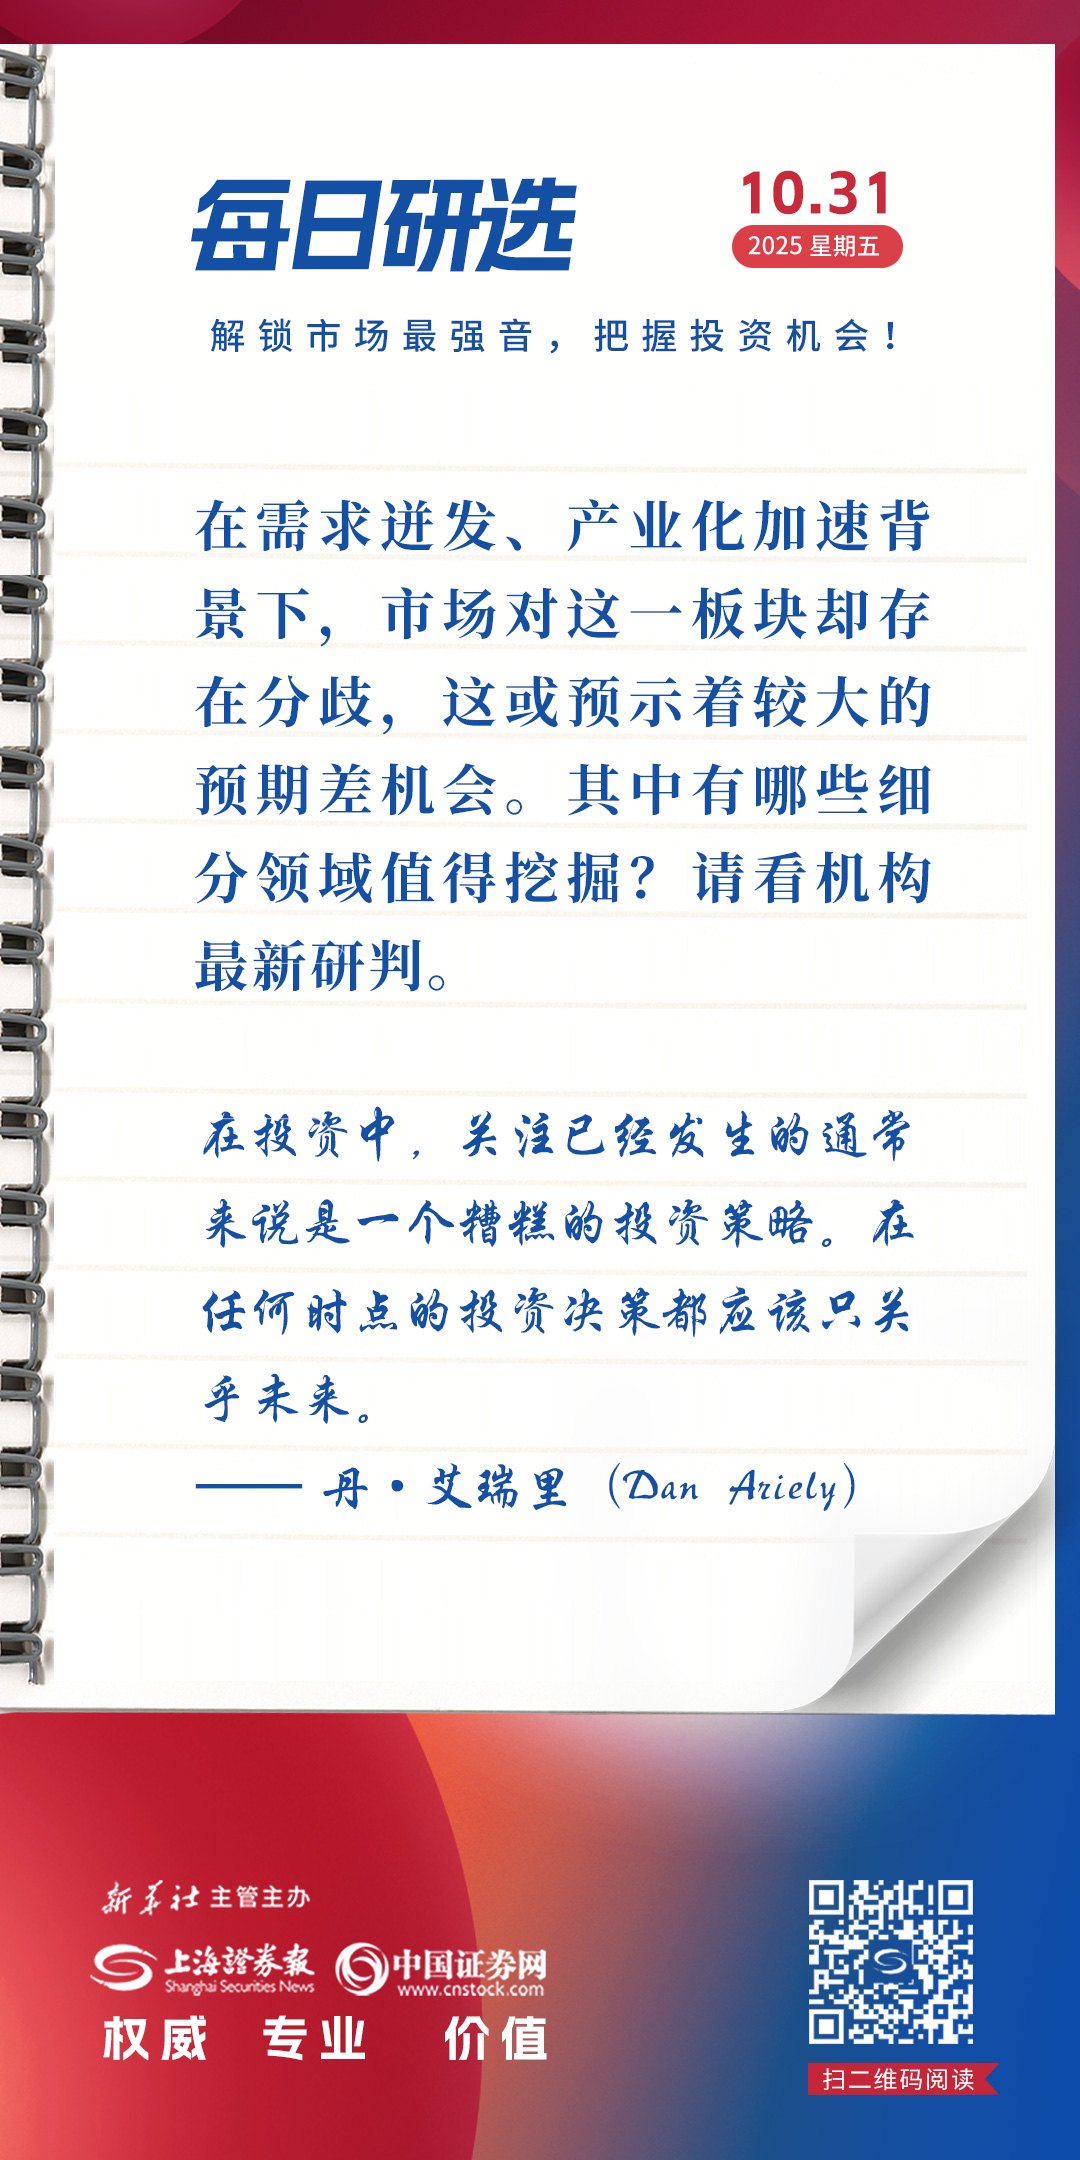 每日研选
10.31
2025 星期五
解锁市场最强音，把握投资机会！
在需求迸发、产业化加速背
景下，市场对这一板块却存
在分歧，这或预示着较大的
预期差机会。其中有哪些细
分领域值得挖掘？请看机构
最新研判。
在投资中，关注已经发生的通常
来说是一个糟糕的投资策略。在
任何时点的投资决策都应该只关
乎未来。
—— 丹·艾瑞里（Dan Ariely）
新华社主管主办
上海證券報 中国证券网
Shanghai Securities News www.cnstock.com
权威 专业 价值
扫二维码阅读